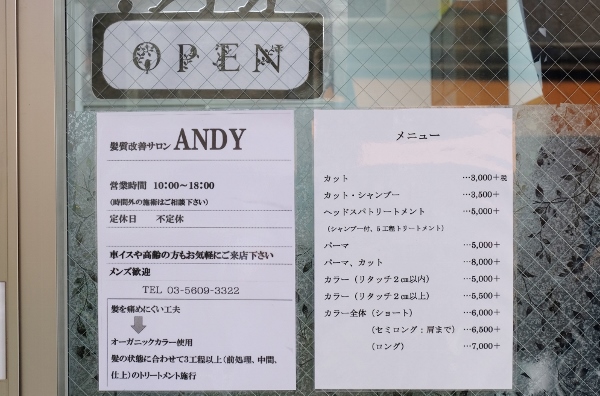 OPEN
髪質改善サロン ANDY
営業時間 10:00～18:00
(時間外の施術はご相談下さい)
定休日 不定休
車イスや高齢の方もお気軽にご来店下さい
メンズ歓迎
TEL 03-5609-3322
髪を痛めにくい工夫
オーガニックカラー使用
髪の状態に合わせて3工程以上(前処理、中間、
仕上)のトリートメント施行
メニュー
カット …3,000+税
カット・シャンプー …3,500+
ヘッドスパトリートメント …5,000+
(シャンプー付、5工程トリートメント)
パーマ …5,000+
パーマ、カット …8,000+
カラー (リタッチ2㎝以内) …5,000+
カラー (リタッチ2㎝以上) …5,500+
カラー全体 (ショート) …6,000+
(セミロング：肩まで) …6,500+
(ロング) …7,000+